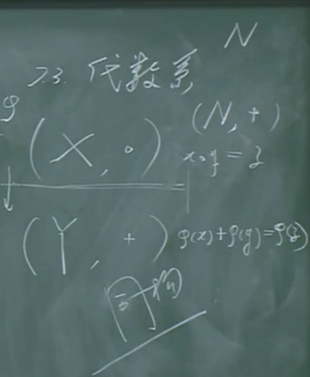 N
7.3. 代数系
(N, +)
φ (X, ∘) x∘y = z
(Y, +) φ(x)+φ(y)=φ(z)
同构